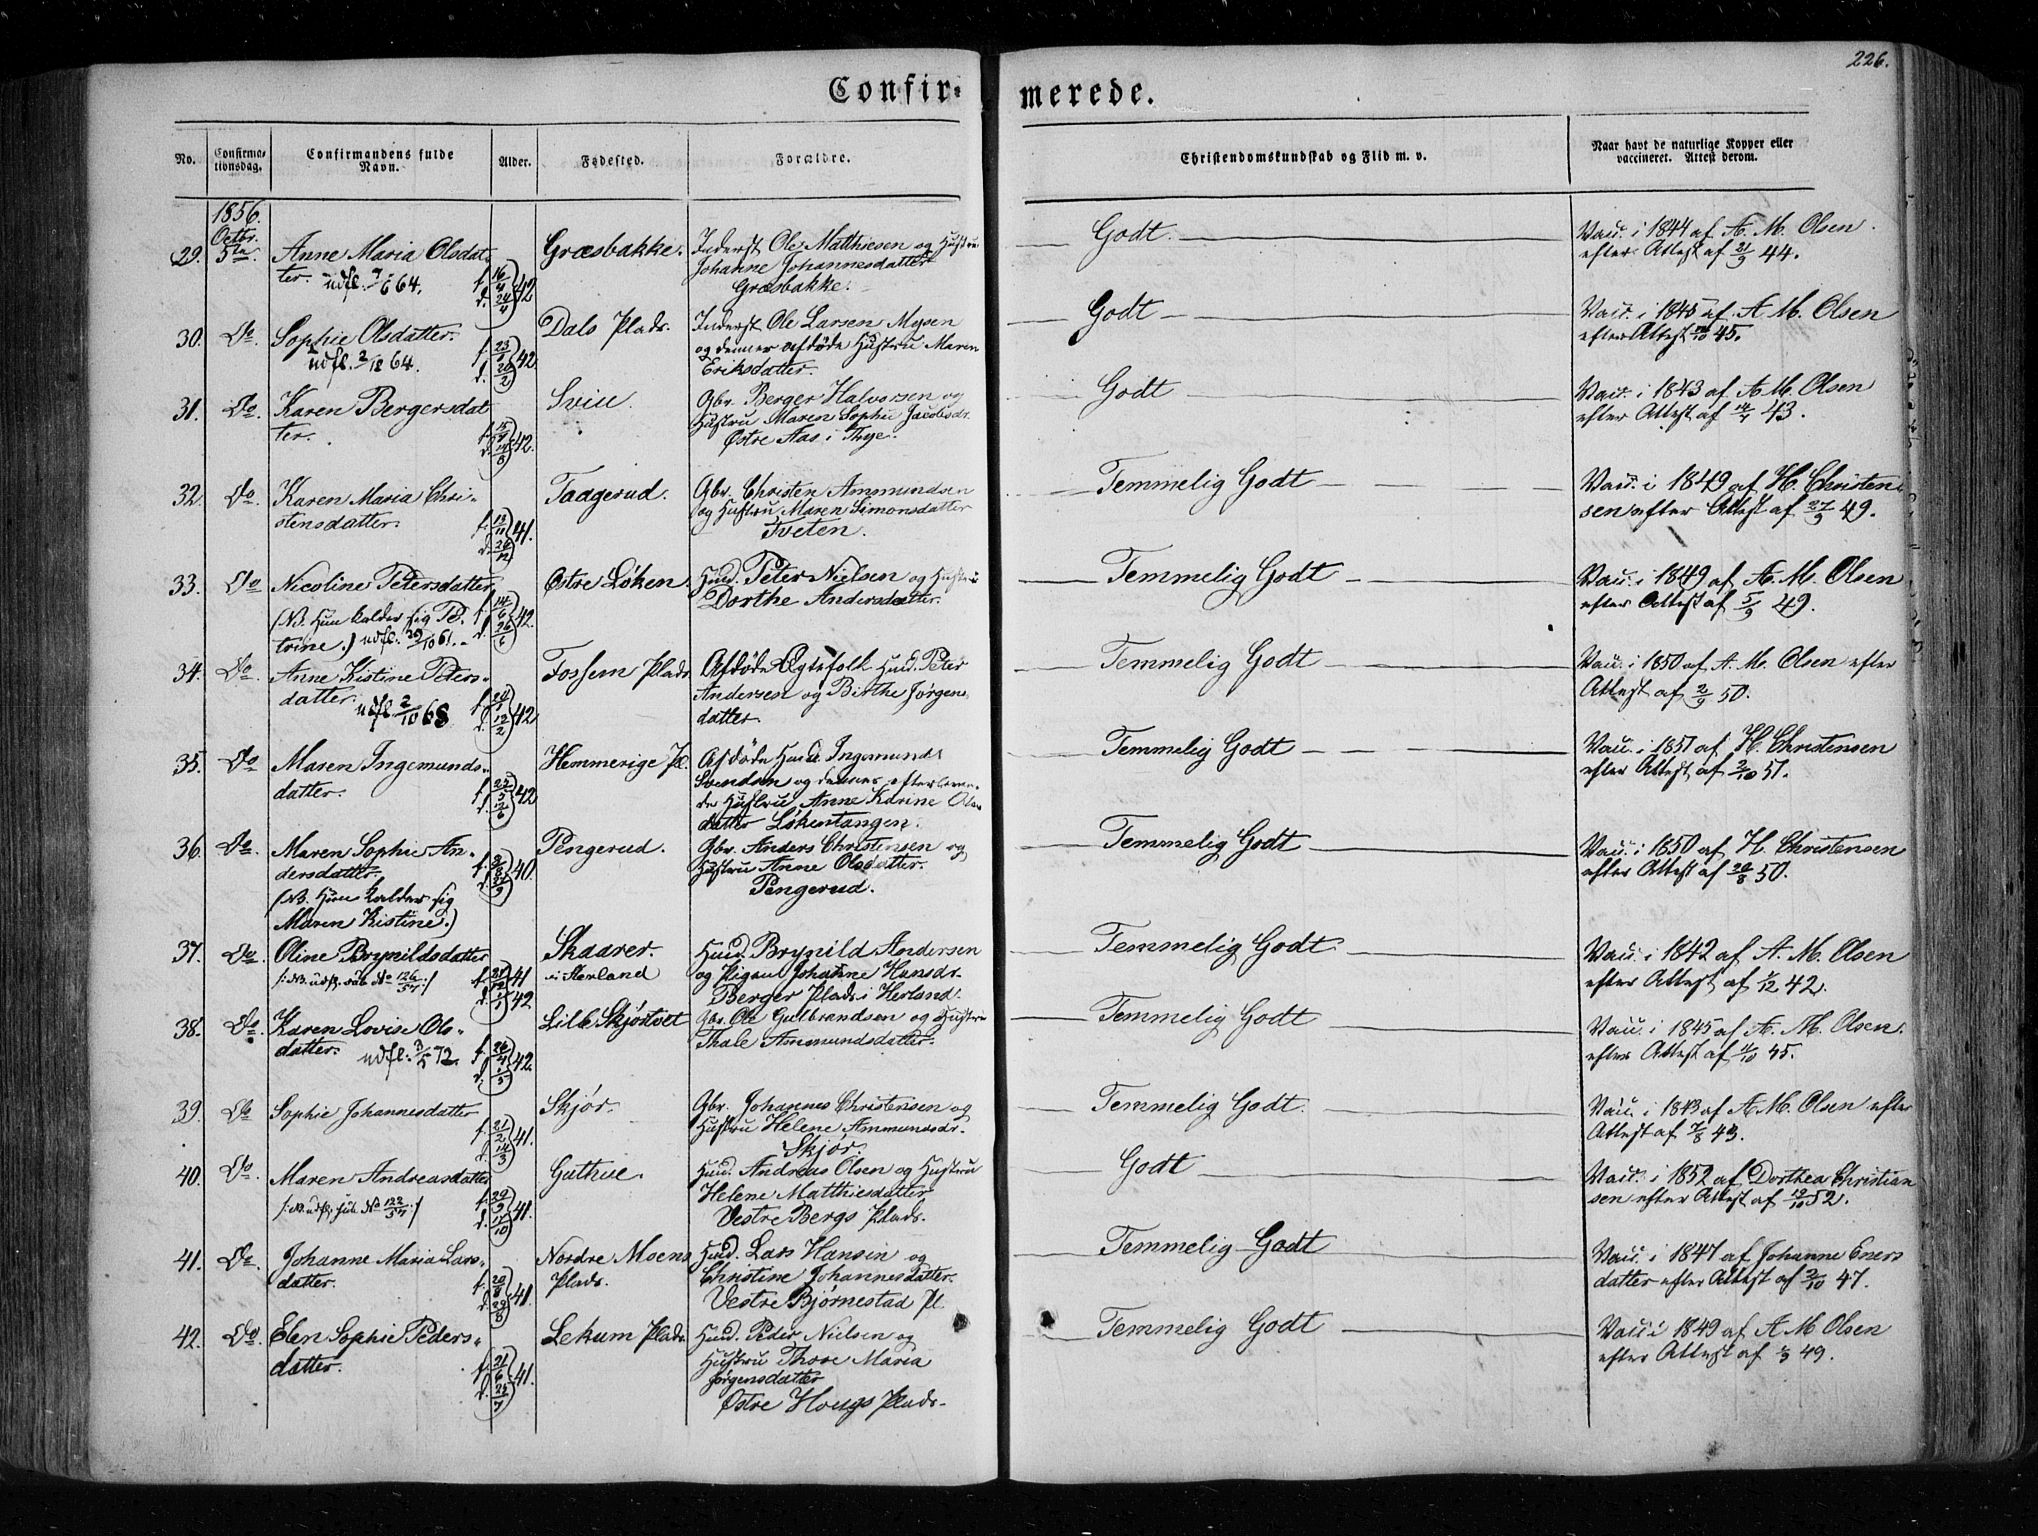 226.
Confir= merede.
No. Confirmationsdag. Confirmandens fulde Navn. Alder. Fødested. Forældre. Christendomskundskab og Flid m. v. Naar havt de naturlige Kopper eller vaccineret. Attest derom.
1856.
Octbr.
29. 5te Anne Maria Olsdat- Græsbakke. Inderst Ole Matthiesen og Hustru Godt. Vacc. i 1844 af A. M. Olsen
ter. udfl. 64. f. 16/4 Johanne Johannesdatter efter Attest af 21/9 44.
d. 24/4 42 Græsbakke.
30. Do Sophie Olsdatter. Dals Plads. Inderst Ole Larsen Mysen Godt Vacc. i 1845 af A. M. Olsen
udfl. 64. f. 23/1 og dennes afdøde Hustru Maren efter Attest 45.
d. 20/2 42. Eriksdatter.
31. Do Karen Bergersdat Sviu. Gbr. Berger Halvorsen og Godt Vacc. i 1843 af A. M. Olsen
ter. f. 15/7 Hustru Maren Sophie Jacobsdr. efter Attest af 14/7 43.
d. 14/8 42. Østre Aas i Thrye.
32. Do Karen Maria Chri- Taagerud. Gbr. Christen Ammundsen Temmelig Godt Vacc. i 1849 af H. Christen
stensdatter. f. 13/11 og Hustru Maren Simonsdatter sen efter Attest af 27/9 49.
d. 26/12 41. Tveten.
33. Do Nicoline Petersdatter Østre Løken. Huusd. Peter Nielsen og Hustru Temmelig Godt Vacc. i 1849 af A. M. Olsen
(NB. Hun kalder sig Pe- f. 14/6 Dorthe Andersdatter. efter Attest af 5/9 49.
trine.) udfl. 29/10 61. d. 26/6 42.
34. Do Anne Kistine Peters- Fossem Plads Afdøde Ægtefolk Huusd. Peter Temmelig Godt Vacc. i 1850 af A. M. Olsen efter
datter. udfl. 2/10 68 f. 20/1 Andersen og Birthe Jørgens Attest af 2/9 50.
d. 12/2 42 datter.
35. Do Maren Ingemunds- Hemmerige Pl. Afdøde Huusd. Ingemund Temmelig Godt Vacc. i 1851 af H. Christensen
datter. f. 22/5 Svendsen og dennes efterleven- efter Attest af 2/10 51.
d. 12/6 42 de Hustru Anne Karine Ols
datter Løkentangen.
36. Do Maren Sophie An- Pengerud. Gbr. Anders Christensen og Temmelig Godt Vacc. i 1850 af H. Christensen
dersdatter. 40. Hustru Anne Olsdatter. efter Attest af 30/8 50.
(NB. Hun kalder sig Pengerud.
Maren Kistine.)
37. Do Oline Brynildsdatter Skaarer. Huusd. Brynild Andersen Temmelig Godt Vacc. i 1842 af A. M. Olsen
/:NB. udfl. sub No 126/57:/ f. 41 i Herland og Pigen Johanne Hansdr. efter Attest af 1/12 42.
d. 1/1 42. Berger Plads i Herland.
38. Do Karen Lovise Ols- Lille Skjørtvet Gbr. Ole Gulbrandsen og Hustru Temmelig Godt Vacc. i 1845 af A. M. Olsen
datter. udfl. 3/5 72. f. 26/4 Thale Ammundsdatter. efter Attest af 11/10 45.
d. 1/5 42.
39. Do Sophie Johannesdatter Skjør. Gbr. Johannes Christensen og Temmelig Godt. Vacc. i 1843 af A. M. Olsen efter
f. 21/2 Hustru Helene Ammundsdr. Attest af 7/8 43.
d. 14/3 41. Skjør.
40. Do Maren Andreasdatter Guthue. Huusd. Andreas Olsen og Hustru Godt Vacc. i 1852 af Dorthea Christian
/:NB. udfl. sub No 122/57:/ f. 29/9 Helene Matthiesdatter sen efter Attest af 19/10 52.
d. 17/10 41. Vestre Bergs Plads.
41. Do Johanne Maria Lars- Nordre Moens Huusd. Lars Hansen og Temmelig Godt Vacc. i 1847 af Johanne Eners
datter. f. 20/8 Plads. Christine Johannesdatter. datter efter Attest af 2/10 47.
d. 29/8 41. Vestre Bjørnestad Pl.
42. Do Elen Sophie Peders- Lekum Plads. Huusd. Peder Nielsen og Temmelig Godt Vacc. i 1849 af A M Olsen
datter. f. 21/6 Hustru Thore Maria efter Attest af 49.
d. 25/7 41. Jørgensdatter
Østre Hougs Plads.